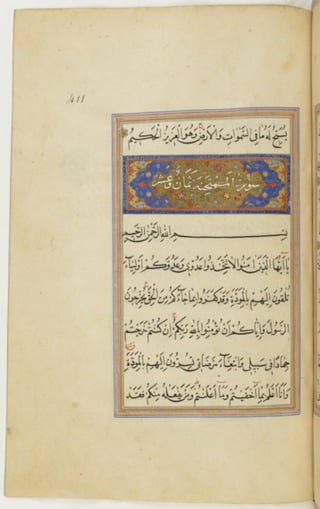 يُسَبِّحُ لَهُ مَا فِي السَّمٰوَاتِ وَالْاَرْضِ وَهُوَ الْعَزِيزُ الْحَكِيمُ
سورة الممتحنة
بِسْمِ اللّٰهِ الرَّحْمٰنِ الرَّحِيمِ
يَا اَيُّهَا الَّذِينَ اٰمَنُوا لَا تَتَّخِذُوا عَدُوِّي وَعَدُوَّكُمْ اَوْلِيَاءَ
تُلْقُونَ اِلَيْهِمْ بِالْمَوَدَّةِ وَقَدْ كَفَرُوا بِمَا جَاءَكُمْ مِنَ الْحَقِّ يُخْرِجُونَ
الرَّسُولَ وَاِيَّاكُمْ اَنْ تُؤْمِنُوا بِاللّٰهِ رَبِّكُمْ اِنْ كُنْتُمْ خَرَجْتُمْ
جِهَادًا فِي سَبِيلِي وَابْتِغَاءَ مَرْضَاتِي تُسِرُّونَ اِلَيْهِمْ بِالْمَوَدَّةِ
وَاَنَا اَعْلَمُ بِمَا اَخْفَيْتُمْ وَمَا اَعْلَنْتُمْ وَمَنْ يَفْعَلْهُ مِنْكُمْ فَقَدْ